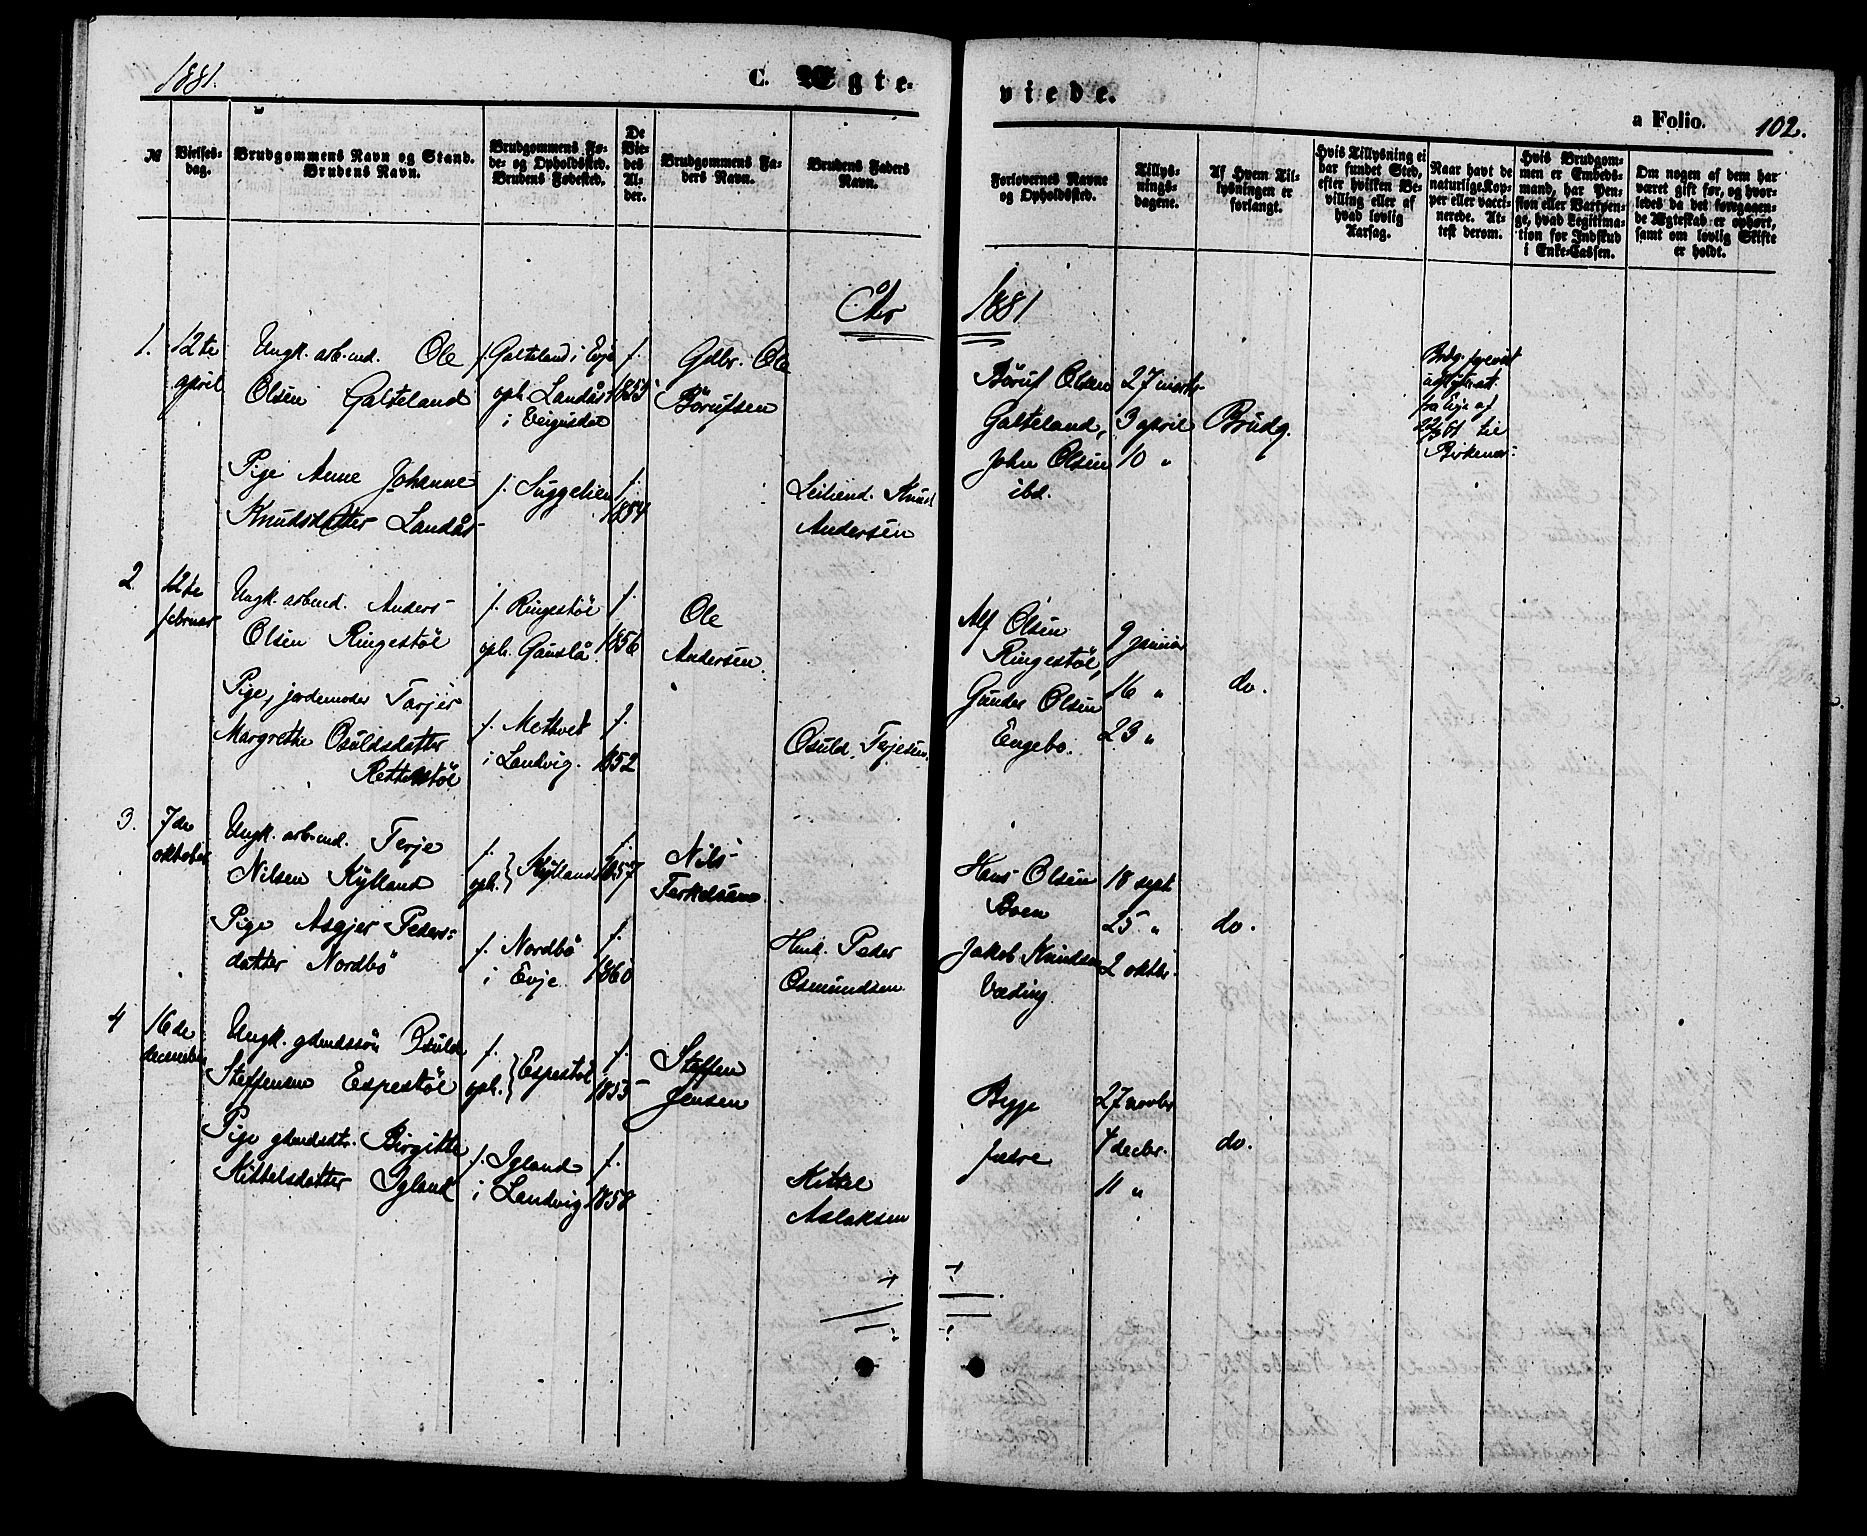 1881.
C. Ægte-
viede.
a Folio. 102.
№
Vielses-
dag.
Brudgommens Navn og Stand.
Brudens Navn.
Brudgommens Fø-
de- og Opholdssted.
Brudens Fødested.
De
Vie-
des
Al-
der.
Brudgommens Fa-
ders Navn.
Brudens Faders
Navn.
Forlovernes Navne
og Opholdssted.
Tillys-
nings-
dagene.
Af Hvem Til-
lysningen er
forlangt.
Hvis Tillysning ei
har fundet Sted,
efter hvilken Be-
villing eller af
hvad lovlig
Aarsag.
Naar havt de
naturlige Kop-
per eller vacci-
nerede. At-
test derom.
Hvis Brudgom-
men er Embeds-
mand, har Pen-
sion eller Vartpen-
ge, hvad Legitima-
tion for Indskud
i Enke-Cassen.
Om nogen af dem har
været gift før, og hvor-
ledes da det foregaaen-
de Ægteskab er ophørt,
samt om lovlig Skifte
er holdt.
År 1881
1. 12te
april
Ungk. arb.md. Ole
Olsen Galteland
f. Galteland i Evje
oph. Landås
i Veigusdal
f.
1855
Gdbr. Ole
Börufsen
Böruf Olsen
Galteland,
John Olsen
ibd.
27 marts
3 april
10 "
Brudg.
fra Evje af
til
Birkenes:
Pige Anne Johanne
Knudsdatter Landås
f. Suggelien
f.
1854
Leilend. Knud
Andersen
2. 12te
februar
Ungk. arbmd. Anders
Olsen Ringestöl
f. Ringestöl
oph. Gauslå
f.
1856
Ole
Andersen
Alf Olsen
Ringestöl,
Gunder Olsen
Engebo.
9 januar
16 "
23 "
do.
Pige, jordemoder Tarjer
Margrethe Osuldsdatter
Rettestöl
f. Methvet
i Landvig.
f.
1852
Osuld Terjesen.
3. 7de
oktober
Ungk. arb.md. Terje
Nilsen Kylland
f.
oph. } Kylland
f.
1857
Nils
Terkelsen
Hans Olsen
Boen
Jakob Knudsen
Væding.
18 sept
25 "
2 oktbr.
do.
Pige Asgjer Peders-
datter Nordbö
f. Nordbö
i Evje
f.
1860
Husm. Peder
Osmundsen
4 16de
december
Ungk. gdmdssön Osuld
Steffensen Espestöl
f.
oph. } Espestöl
f.
1855
Steffen
Jensen
Begge
fædre
27 novbr
4 decbr.
11 "
do.
Pige gdmdsdtr. Birgitte
Kittelsdatter Igland
f. Igland
i Landvig
f.
1858
Kittel
Aslaksen